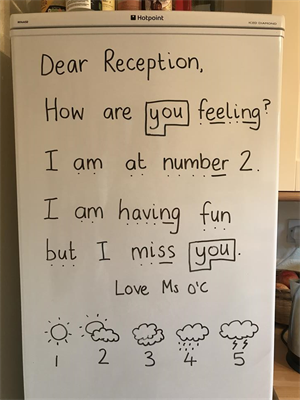 Hotpoint
Dear Reception,
How are you feeling?
I am at number 2.
I am having fun
but I miss you.
Love Ms O'C
1 2 3 4 5